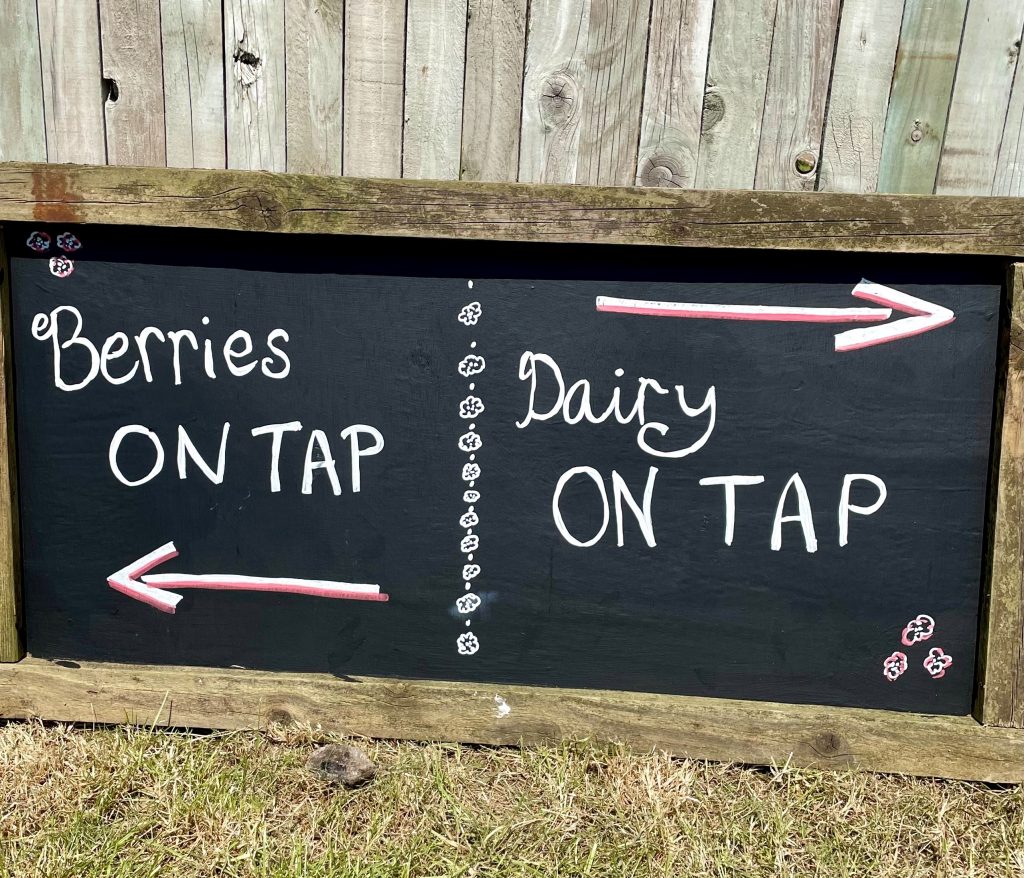 Berries
ON TAP
Dairy
ON TAP